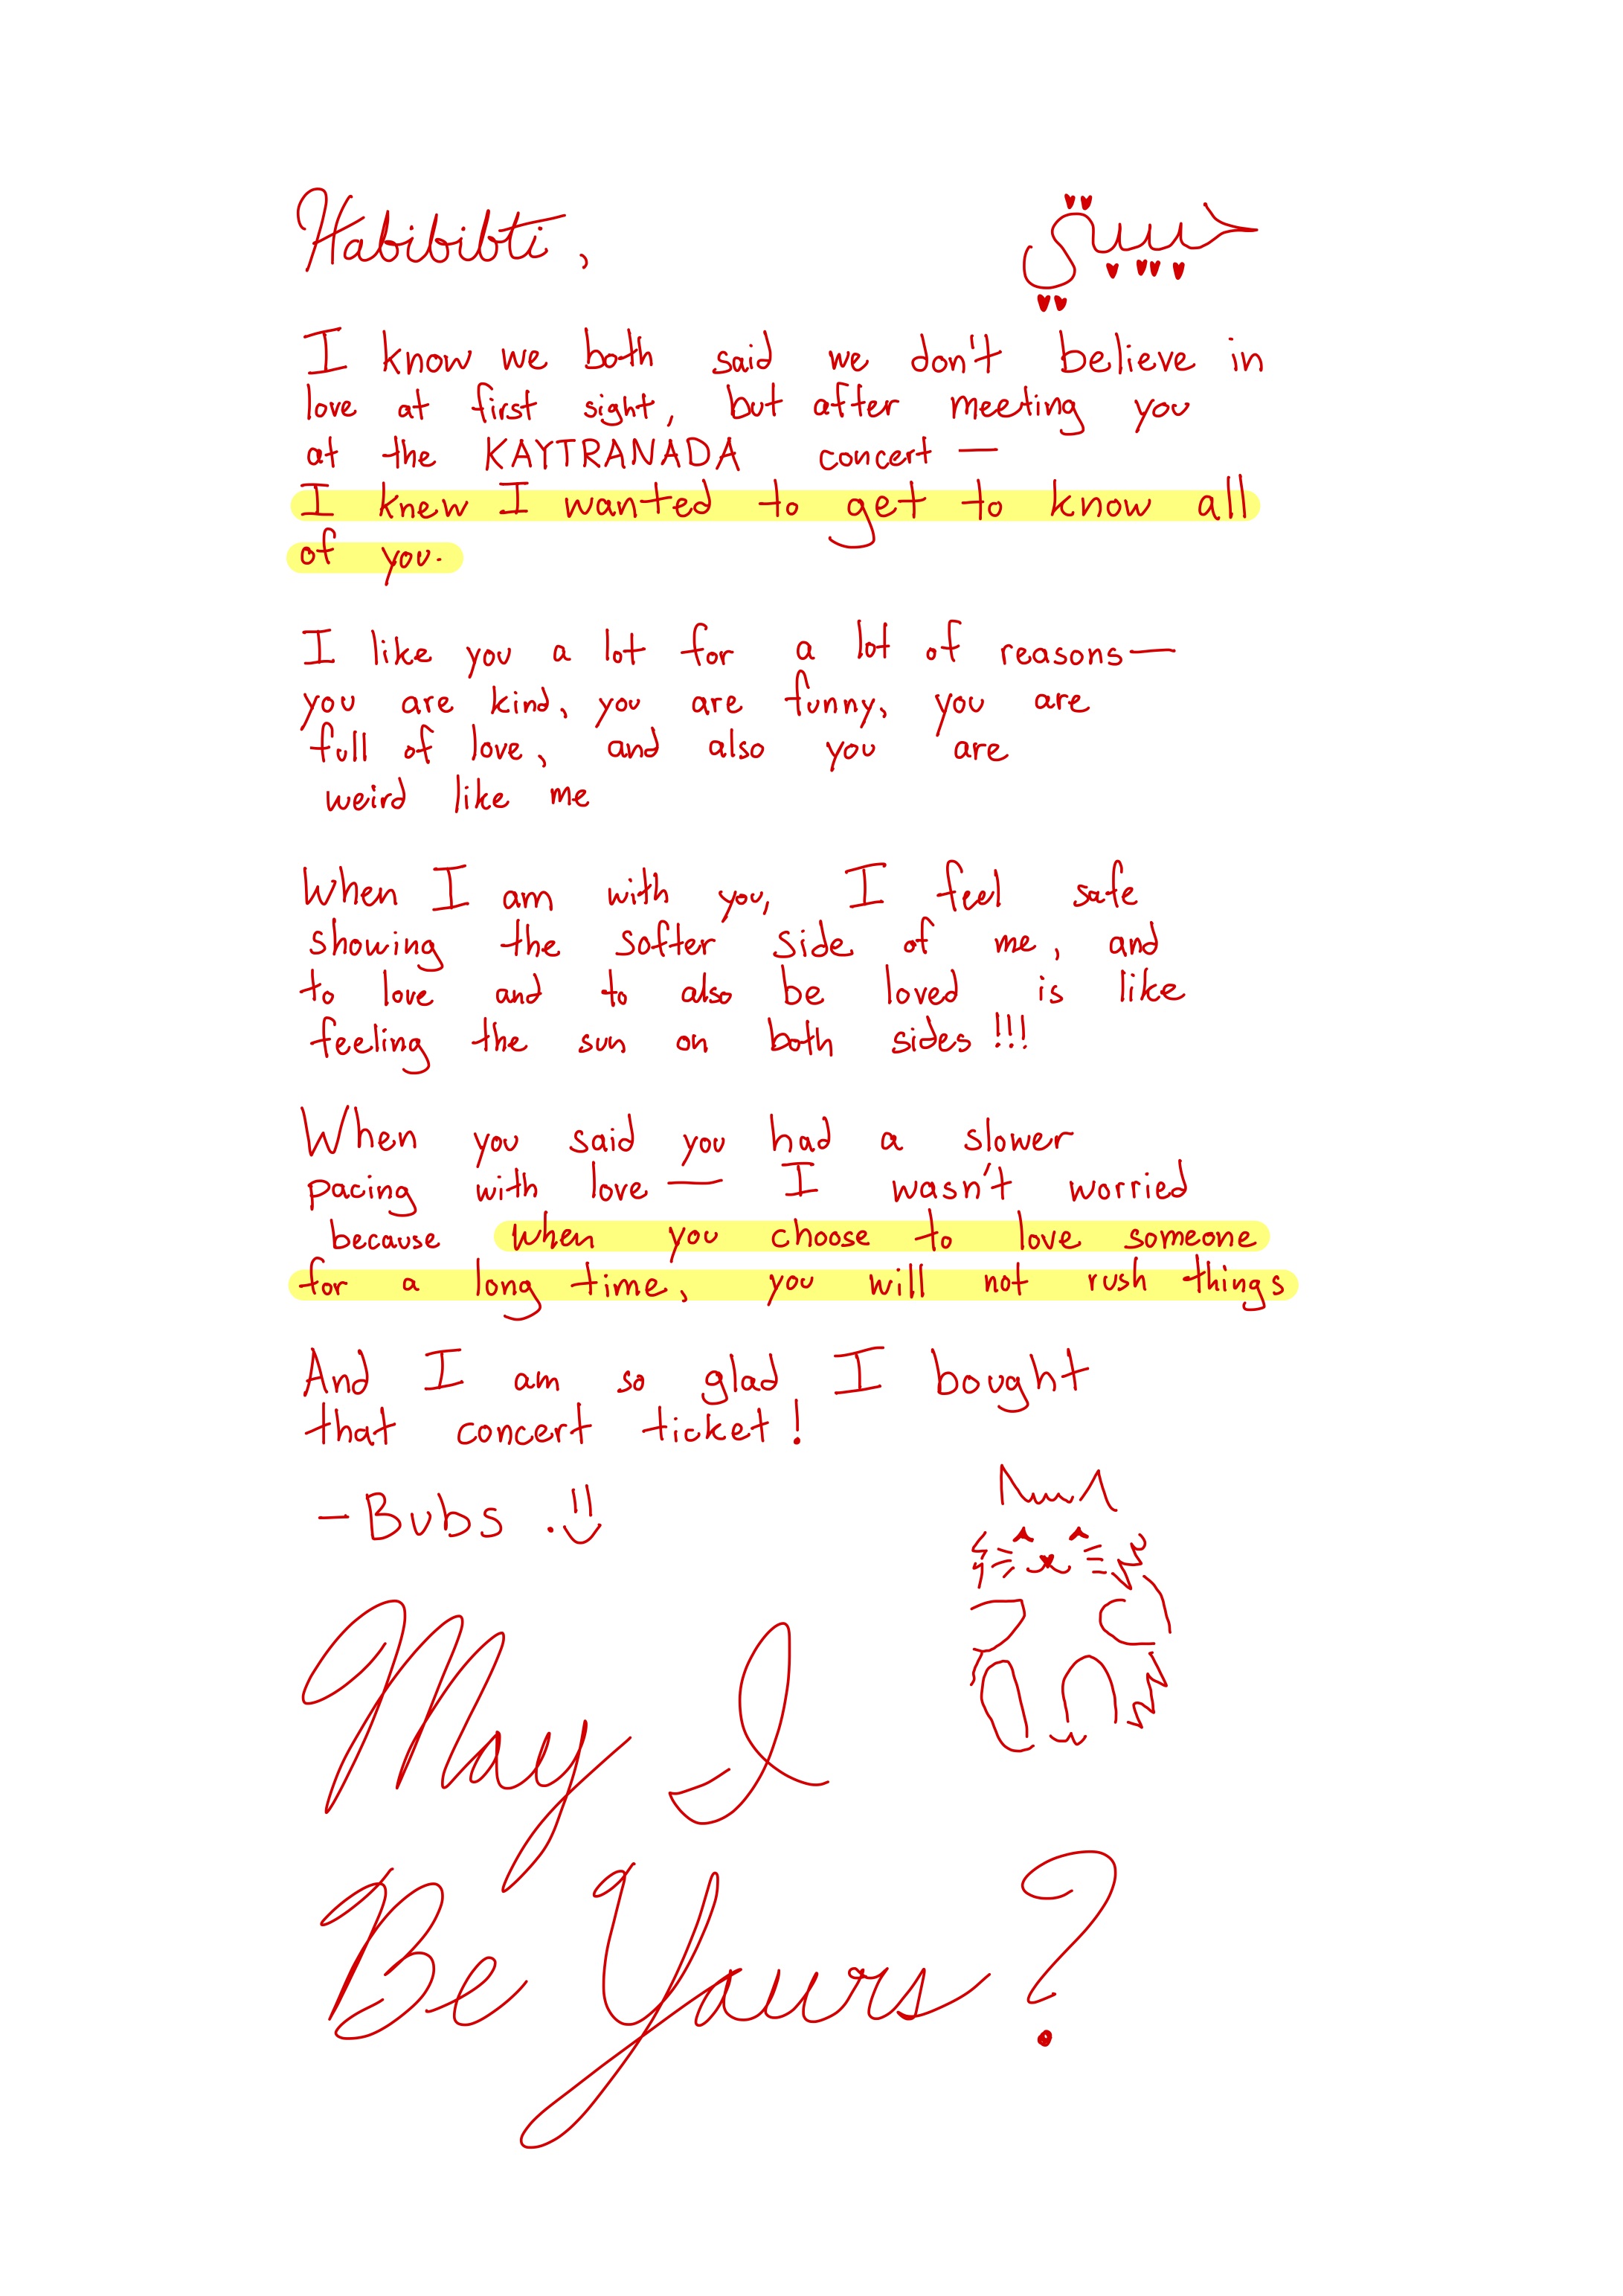 Habibibti,
حبيبتي
I know we both said we don't believe in
love at first sight, but after meeting you
at the KAYTRANADA concert —
I knew I wanted to get to know all
of you.
I like you a lot for a lot of reasons —
you are kind, you are funny, you are
full of love, and also you are
weird like me
When I am with you, I feel safe
showing the softer side of me, and
to love and to also be loved is like
feeling the sun on both sides!!!
When you said you had a slower
pacing with love — I wasn't worried
because when you choose to love someone
for a long time, you will not rush things
And I am so glad I bought
that concert ticket!
— Bubs
May I
Be Yours?